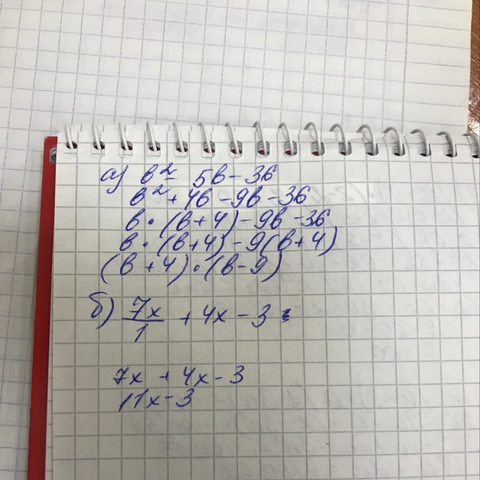 а) в² - 5в - 36
в² + 4в - 9в - 36
в · (в+4) - 9в - 36
в · (в+4) - 9(в+4)
(в+4) · (в-9)
б) 7x/1 + 4x - 3
7x + 4x - 3
11x - 3